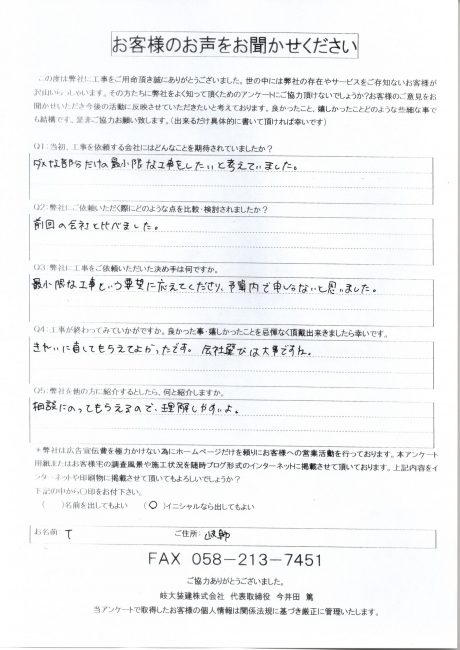 お客様のお声をお聞かせください
この度は弊社に工事をご用命頂き誠にありがとうございました。世の中には弊社の存在やサービスをご存知ないお客様が
沢山いらっしゃいます。その方たちに弊社をよく知って頂くためのアンケートにご協力頂けないでしょうか?お客様のご意見をお
聞かせいただき今後の活動に反映させていただきたいと考えております。良かったこと、嬉しかったことどのような些細な事で
も結構です、是非ご協力お願い致します。(出来るだけ具体的に書いて頂ければ幸いです)
Q1:当初、工事を依頼する会社にはどんなことを期待されていましたか?
ダメな部分だけの最小限な工事をしたいと考えていました。
Q2:弊社にご依頼いただく際にどのような点を比較・検討されましたか?
前回の会社と比べました。
Q3:弊社に工事をご依頼いただいた決め手は何ですか。
最小限な工事という要望に応えてくださり、予算内で申し分ないと思いました。
Q4:工事が終わってみていかがですか。良かった事・嬉しかったことを忌憚なく頂戴出来きましたら幸いです。
きれいに直してもらえてよかったです。会社選びは大事ですね。
Q5:弊社を他の方に紹介するとしたら、何と紹介しますか。
相談にのってもらえるので、理解しやすいよ。
*弊社は広告宣伝費を極力かけない為にホームページだけを頼りにお客様への営業活動を行っております。本アンケート
用紙またはお客様宅の調査風景や施工状況を随時ブログ形式のインターネットに掲載させて頂いております。上記内容をイ
ンターネットや印刷物に掲載させて頂いてもよろしいでしょうか?
下記の中から〇印をお付け下さい。
( )名前を出してもよい (〇)イニシャルなら出してもよい
お名前 T ご住所: 岐阜
FAX 058-213-7451
ご協力ありがとうございました。
岐大装建株式会社 代表取締役 今井田 篤
当アンケートで取得したお客様の個人情報は関係法規に基づき厳正に管理いたします。